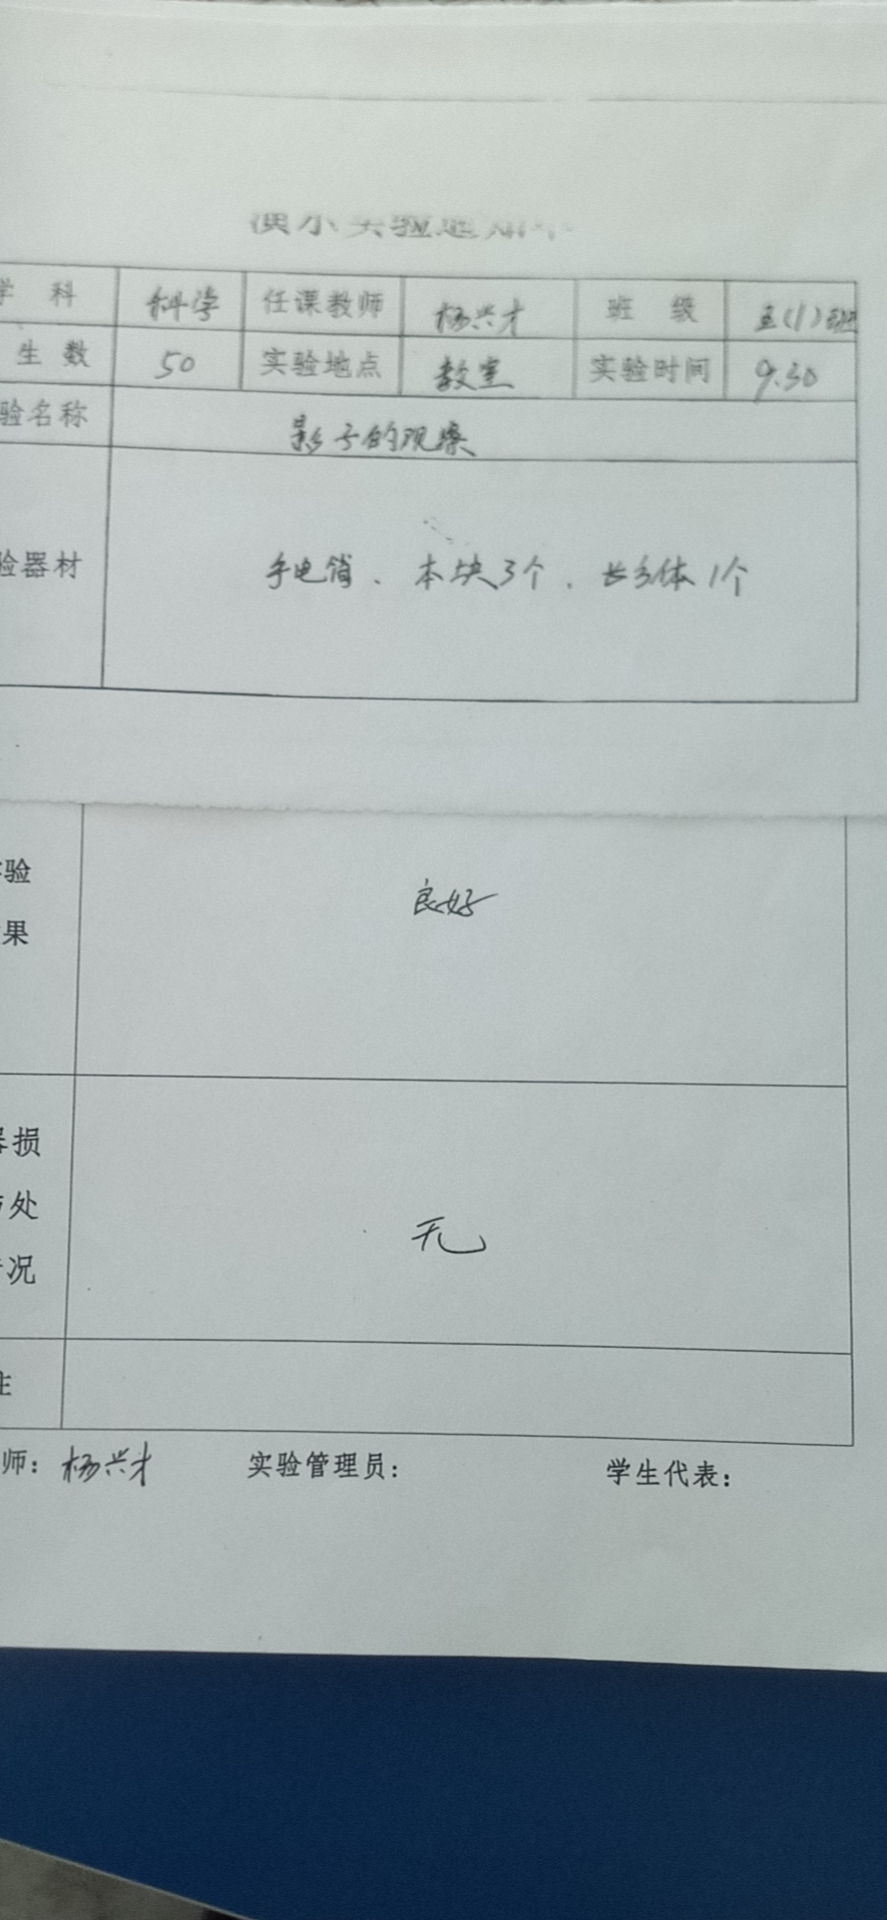 演示实验通知单
学 科 科学 任课教师 杨兴才 班 级 五(1)班
生数 50 实验地点 教室 实验时间 9.30
验名称 影子的观察
验器材 手电筒、木块3个、长方体1个
验
果
良好
器损
与处
情况
无
注
师: 杨兴才 实验管理员: 学生代表: